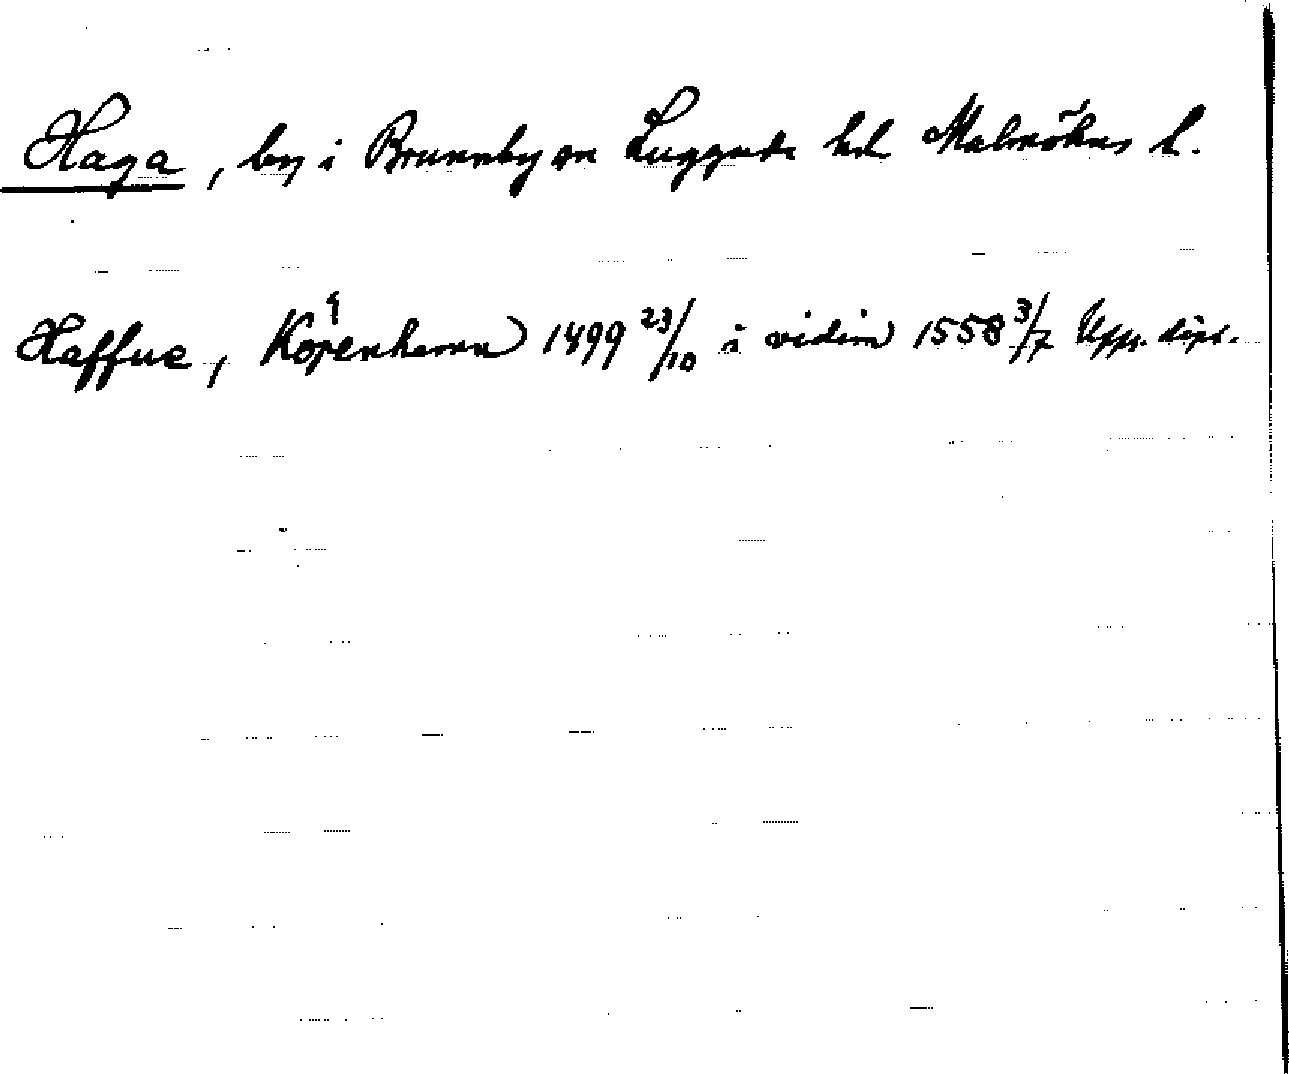 Haga, by i Brunnby sn Luggude hd Malmöhus l.
Haffue, Köpenhamn 1499 23/10 i vidim 1558 3/7 Upps. dipl.